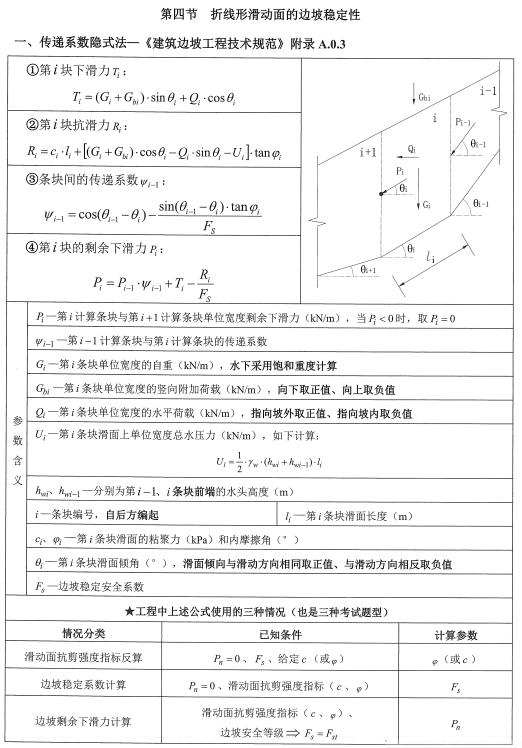 第四节 折线形滑动面的边坡稳定性
一、传递系数隐式法—《建筑边坡工程技术规范》附录 A.0.3
①第 i 块下滑力 Tᵢ：
Tᵢ = (Gᵢ + G_bi)·sin θᵢ + Qᵢ·cos θᵢ
②第 i 块抗滑力 Rᵢ：
Rᵢ = cᵢ·lᵢ + [(Gᵢ + G_bi)·cos θᵢ − Qᵢ·sin θᵢ − Uᵢ]·tan φᵢ
③条块间的传递系数 ψᵢ₋₁：
ψᵢ₋₁ = cos(θᵢ₋₁ − θᵢ) − sin(θᵢ₋₁ − θᵢ)·tan φᵢ / F_S
④第 i 块的剩余下滑力 Pᵢ：
Pᵢ = Pᵢ₋₁·ψᵢ₋₁ + Tᵢ − Rᵢ / F_S
i−1
Gbi
i
Pi−1
θi−1
i+1
Qi
Pi
θi
Gi
θi−1
θi
li
θi+1
参数含义
Pᵢ —第 i 计算条块与第 i+1 计算条块单位宽度剩余下滑力（kN/m），当 Pᵢ < 0 时，取 Pᵢ = 0
ψᵢ₋₁ —第 i−1 计算条块与第 i 计算条块的传递系数
Gᵢ —第 i 条块单位宽度的自重（kN/m），水下采用饱和重度计算
G_bi —第 i 条块单位宽度的竖向附加荷载（kN/m），向下取正值、向上取负值
Qᵢ —第 i 条块单位宽度的水平荷载（kN/m），指向坡外取正值、指向坡内取负值
Uᵢ —第 i 条块滑面上单位宽度总水压力（kN/m），如下计算：
Uᵢ = 1/2·γ_w·(h_wi + h_wi−1)·lᵢ
h_wi、h_wi−1 —分别为第 i−1、i 条块前端的水头高度（m）
i —条块编号，自后方编起
lᵢ —第 i 条块滑面长度（m）
cᵢ、φᵢ —第 i 条块滑面的粘聚力（kPa）和内摩擦角（°）
θᵢ —第 i 条块滑面倾角（°），滑面倾向与滑动方向相同取正值、与滑动方向相反取负值
F_s —边坡稳定安全系数
★工程中上述公式使用的三种情况（也是三种考试题型）
情况分类 已知条件 计算参数
滑动面抗剪强度指标反算 Pₙ = 0 、 F_s 、给定 c （或 φ） φ（或 c）
边坡稳定系数计算 Pₙ = 0 、滑动面抗剪强度指标（ c 、 φ） F_s
边坡剩余下滑力计算 滑动面抗剪强度指标（ c 、 φ）、
边坡安全等级 ⇒ F_s = F_st Pₙ